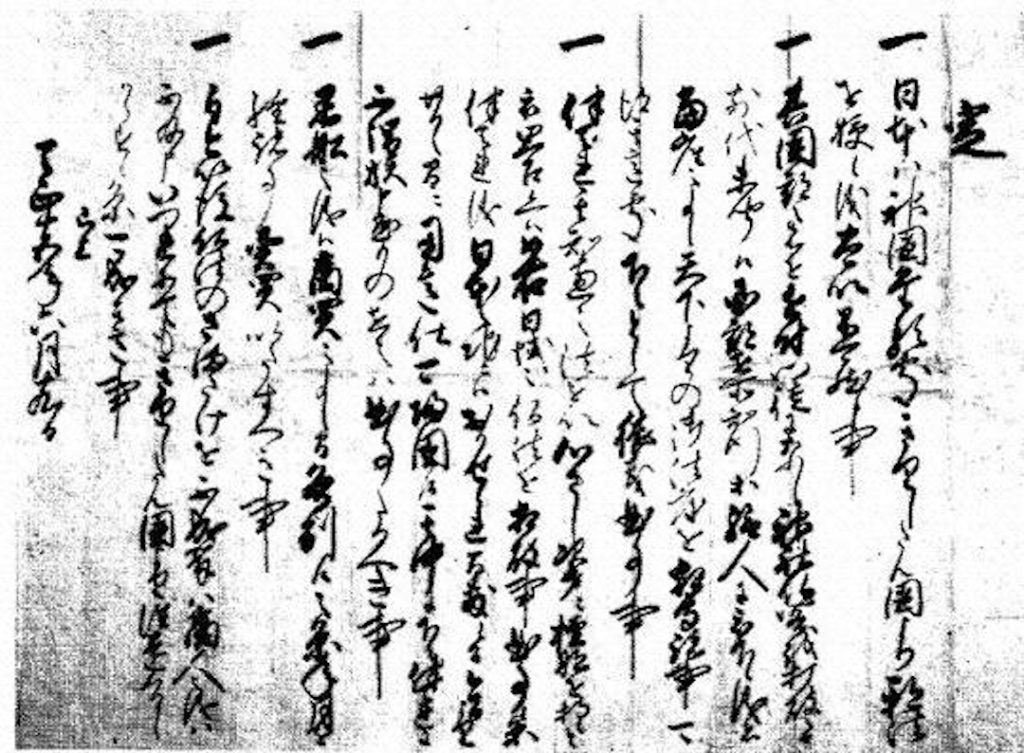 定
一 日本ハ神国たる処きりしたん国より邪法
を授候儀太以不可然候事
一 其国郡之者を近付門徒になし神社仏閣を打破之由
前代未聞候国郡在所知行等給人に被下候儀者
当座之事候天下よりの御法度を相守諸事可
得其意処下々として猥義曲事事
一 伴天連其知恵之法を以心さし次第ニ檀那を持
候と被思召候ヘハ如右日域之仏法を相破事曲事候条
伴天連儀日本之地ニハおかせられ間敷候間今日より
廿日之間ニ用意仕可帰国候其中に下々伴天連に
不謂族申懸もの在之ハ曲事たるへき事
一 黒船之儀ハ商買之事候間各別に候之条年月を
経諸事売買いたすへき事
一 自今以後仏法のさまたけを不成輩ハ商人之儀ハ
不及申いつれにてもきりしたん国より往還くるし
からす候条可成其意事
已上
天正十五年六月十九日